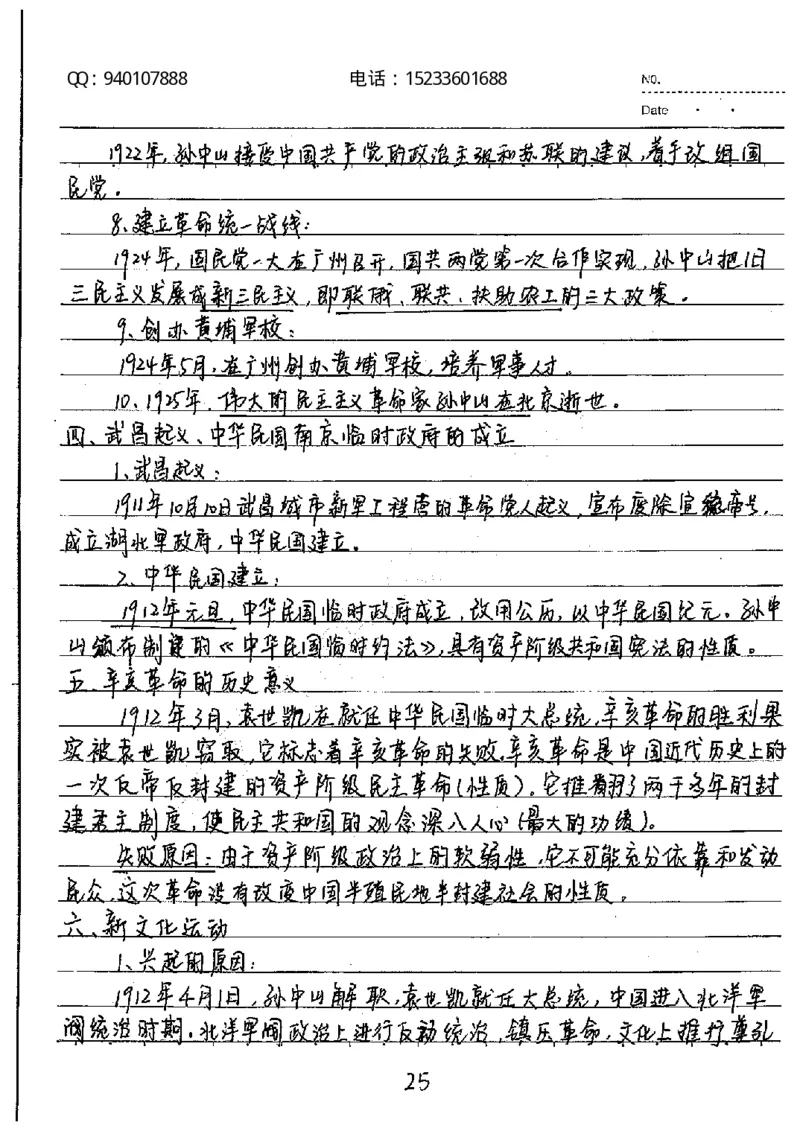 QQ：940107888 电话：15233601688 NO.
Date
1922年，孙中山接受中国共产党的政治主张和苏联的建议，着手改组国
民党。
8、建立革命统一战线：
1924年，国民党一大在广州召开，国共两党第一次合作实现，孙中山把旧
三民主义发展成新三民主义，即联俄、联共、扶助农工的三大政策。
9、创办黄埔军校：
1924年5月，在广州创办黄埔军校，培养军事人才。
10、1925年，伟大的民主主义革命家孙中山在北京逝世。
四、武昌起义、中华民国南京临时政府的成立
1、武昌起义：
1911年10月10日武昌城市新军工程营的革命党人起义，宣布废除宣统帝号，
成立湖北军政府，中华民国建立。
2、中华民国建立：
1912年元旦，中华民国临时政府成立，改用公历，以中华民国纪元。孙中
山颁布制建的《中华民国临时约法》，具有资产阶级共和国宪法的性质。
五、辛亥革命的历史意义
1912年3月，袁世凯在就任中华民国临时大总统，辛亥革命的胜利果
实被袁世凯窃取，它标志着辛亥革命的失败。辛亥革命是中国近代历史上的
一次反帝反封建的资产阶级民主革命（性质）。它推翻了两千多年的封
建君主制度，使民主共和国的观念深入人心（最大的功绩）。
失败原因：由于资产阶级政治上的软弱性，它不可能充分依靠和发动
民众，这次革命没有改变中国半殖民地半封建社会的性质。
六、新文化运动
1、兴起的原因：
1912年4月1日，孙中山解职，袁世凯就任大总统，中国进入北洋军
阀统治时期。北洋军阀政治上进行反动统治，镇压革命，文化上推行尊孔
25